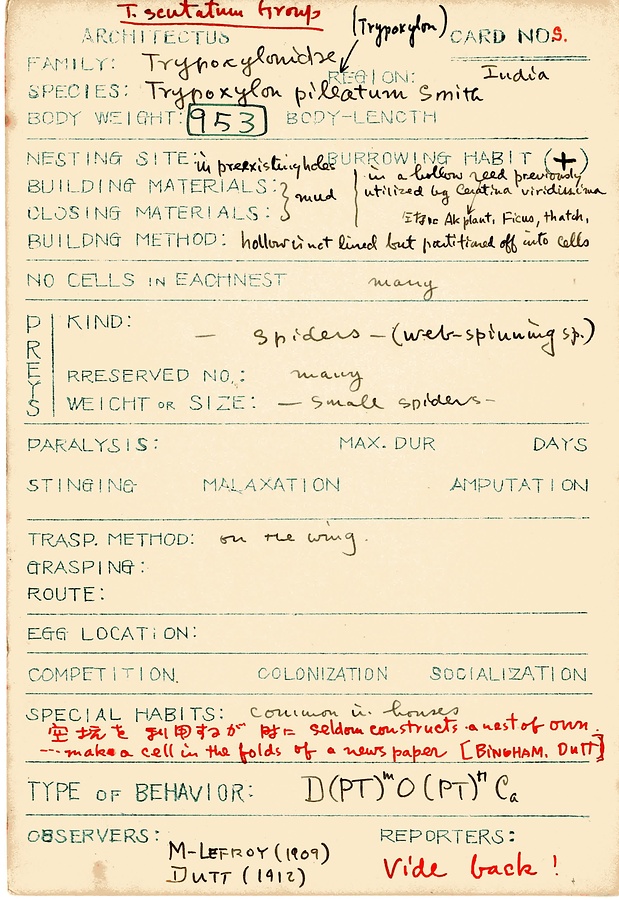 T. scutatum Group
(Trypoxylon)
ARCHITECTUS CARD NOS.
FAMILY: Trypoxylonidae
REGION: India
SPECIES: Trypoxylon pileatum Smith
BODY WEIGHT: 953 BODY-LENGTH
NESTING SITE: in preexisting holes BURROWING HABIT (+)
in a hollow reed previously
BUILDING MATERIALS: } mud utilized by Ceratina viridissima
CLOSING MATERIALS: Ak plant, Ficus, thatch,
BUILDNG METHOD: hollow is not lined but partitioned off into cells
NO CELLS iN EACHNEST many
PREYS
KIND: — spiders — (web-spinning sp.)
RRESERVED NO.: many
WEIGHT OR SIZE: — small spiders —
PARALYSIS: MAX. DUR DAYS
STINGING MALAXATION AMPUTATION
TRASP. METHOD: on the wing.
GRASPING:
ROUTE:
EGG LOCATION:
COMPETITION. COLONIZATION SOCIALIZATION
SPECIAL HABITS: common in houses
空坑を利用するが 時に seldom constructs a nest of own.
--- make a cell in the folds of a news paper [BINGHAM, DUTT]
TYPE OF BEHAVIOR: D(PT)ᵐO(PT)ⁿCa
OBSERVERS: REPORTERS:
M-LEFROY (1909)
DUTT (1912) Vide back!